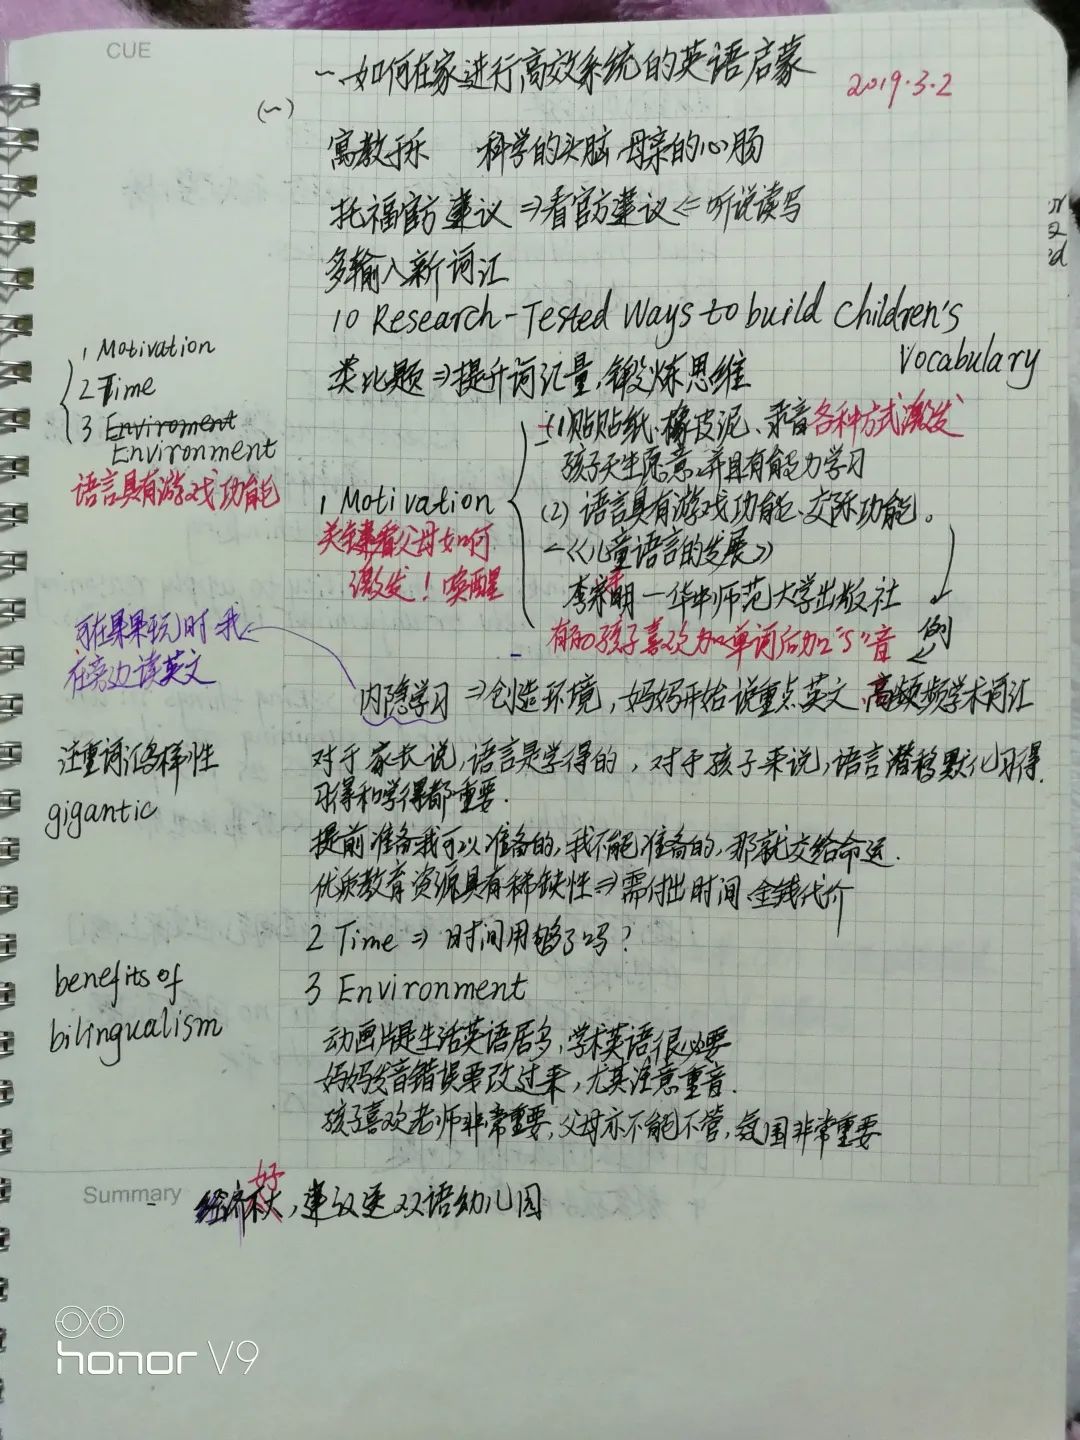 CUE
一.如何在家进行高效系统的英语启蒙
2019.3.2
(一)
寓教于乐 科学的头脑 母亲的心肠
托福官方建议⇒看官方建议⇐听说读写
多输入新词汇
10 Research-Tested Ways to build Children's
Vocabulary
1 Motivation
2 Time
3 Enviroment
Environment
语言具有游戏功能
类比题⇒提升词汇量,锻炼思维
(1)贴贴纸、橡皮泥、录音各种方式激发
孩子天生愿意,并且有能力学习
1 Motivation
关键看父母如何
激发！唤醒
(2) 语言具有游戏功能、交际功能。
—《儿童语言的发展》
李宇明—华中师范大学出版社
有的孩子喜欢加"单词后加"s"音
例
可在果果玩时我
在旁边读英文
内隐学习 ⇒创造环境,妈妈开始说重点英文,高频学术词汇
注重词汇多样性
gigantic
对于家长说,语言是学得的,对于孩子来说,语言潜移默化习得.
习得和学得都重要.
提前准备我可以准备的,我不能准备的,那就交给命运.
优质教育资源具有稀缺性⇒需付出时间、金钱代价
2 Time ⇒ 时间用够了吗?
benefits of
bilingualism
3 Environment
动画片是生活英语居多,学术英语很必要
妈妈发音错误要改过来,尤其注意重音.
孩子喜欢老师非常重要,父母亦不能不管,氛围非常重要
Summary
经济好,建议送双语幼儿园
honor V9